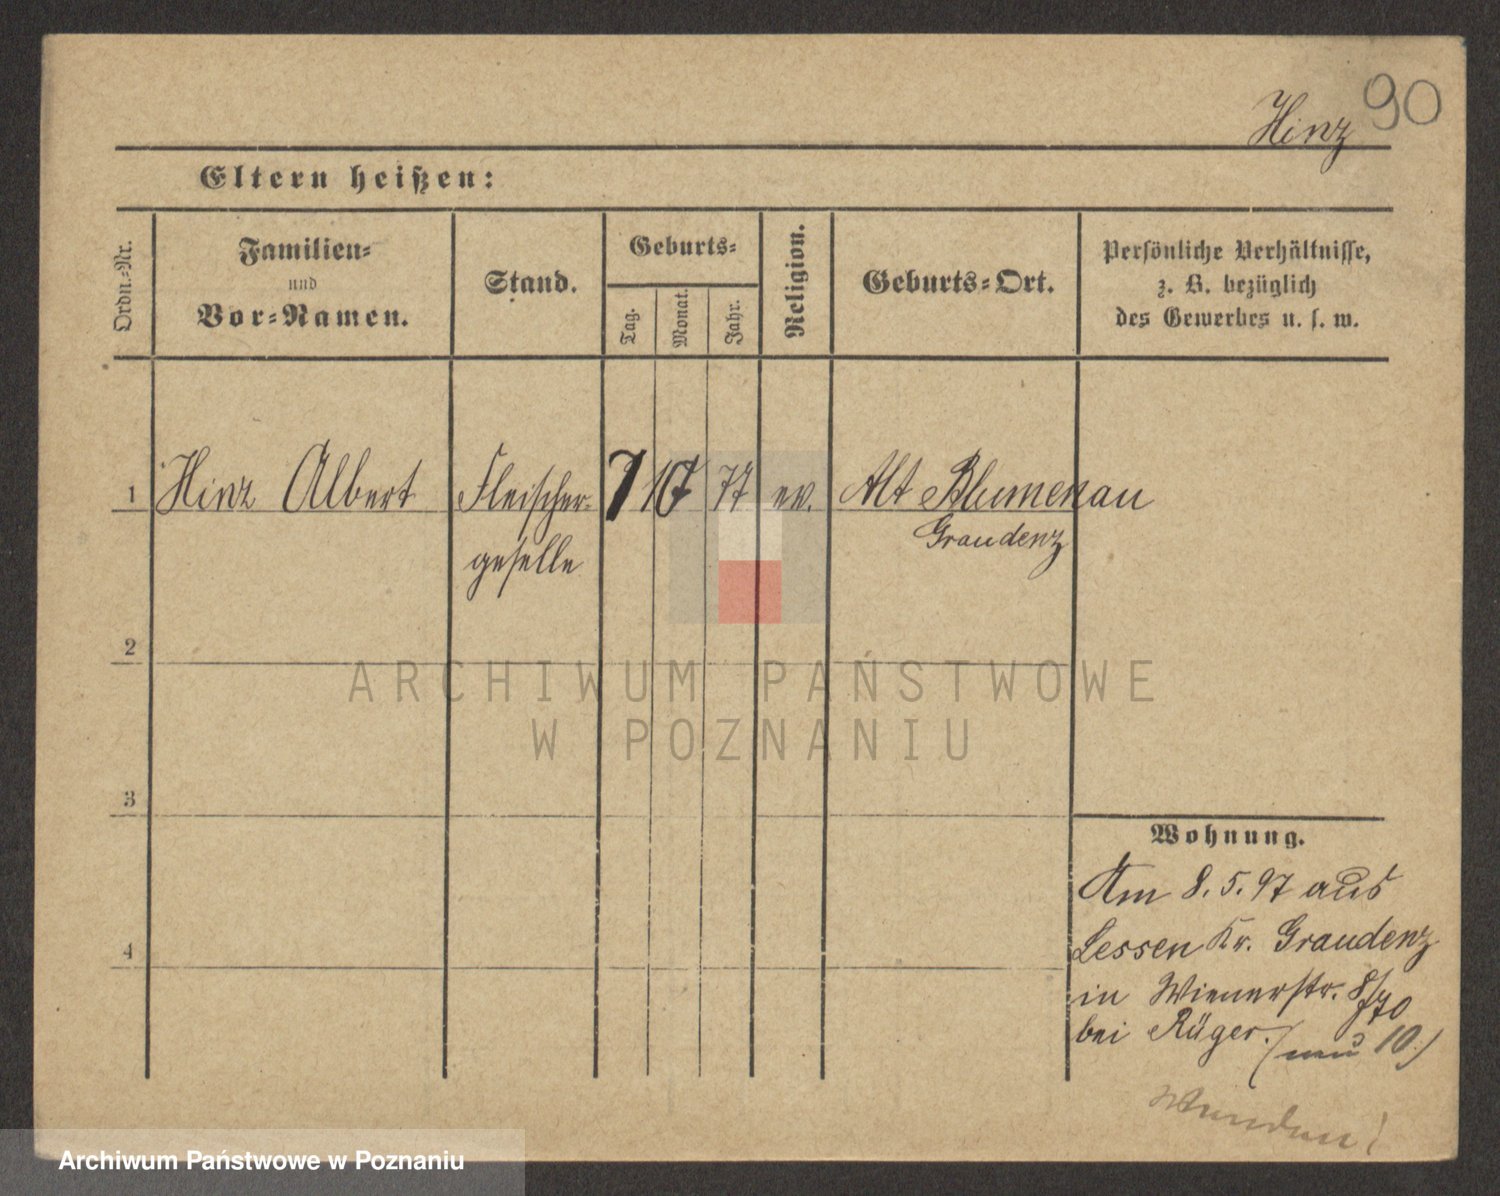 Hinz 90
Eltern heißen:
Ordn.-Nr.
Familien-
und
Vor-Namen.
Stand.
Geburts-
Tag.
Monat.
Jahr.
Religion.
Geburts-Ort.
Persönliche Verhältnisse,
z. B. bezüglich
des Gewerbes u. s. w.
1 Hinz Albert Fleischer- 7 10 77 ev. Alt Blumenau
geselle Graudenz
2
ARCHIWUM PAŃSTWOWE
W POZNANIU
3
Wohnung.
Am 8.5.97 aus
Lessen Kr. Graudenz
4
in Wienerstr. 8/70
bei Rüger. (neu 10.)
Archiwum Państwowe w Poznaniu